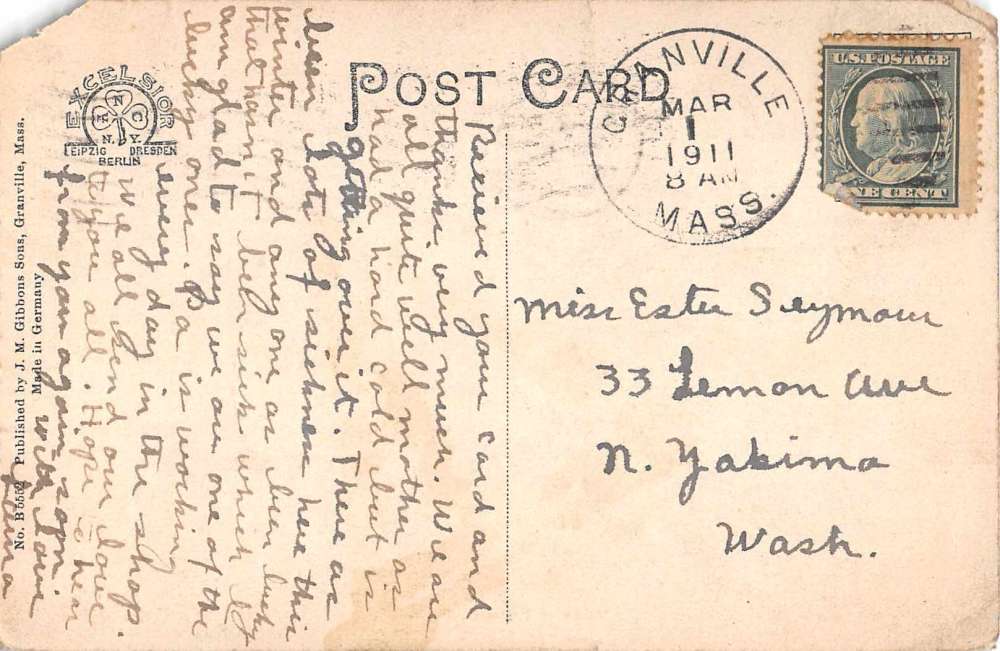 POST CARD
EXCELSIOR
N
C
N.Y.
LEIPZIG DRESDEN
BERLIN
GRANVILLE
MAR
1
1911
8 AM
MASS.
U.S. POSTAGE
ONE CENT
Miss Ester Seymour
33 Lemon Ave
N. Yakima
Wash.
Recieved your card and
thanks very much. We are
all quite well mother as
had a hard cold but is
getting over it. There as
bien lots of sickness here this
winter and any one as bien lucky
that hasn't beh sick which I
am glad to say we are one of the
lucky ones. Pa is working
every day in the shop.
We all send our love
to you all. Hope to hear
from you again soon.
with love
No. B5552 Published by J. M. Gibbons Sons, Granville, Mass.
Made in Germany